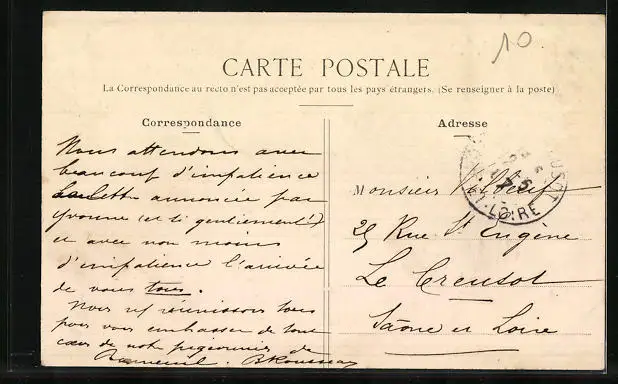 10
CARTE POSTALE
La Correspondance au recto n'est pas acceptée par tous les pays étrangers. (Se renseigner à la poste)
Correspondance
Adresse
Nous attendons avec
beaucoup d'impatience
la lettre annoncée par
Yvonne (et si gentiement?)
et avec non moins
d'impatience l'arrivée
de vous tous.
Nous réunissons tous
pour vous embrasser de tout
cœur de notre pigeonnier de
B Rousseau
Monsieur
25 Rue St Eugène
Le Creusot
Saône et Loire
LOIRE